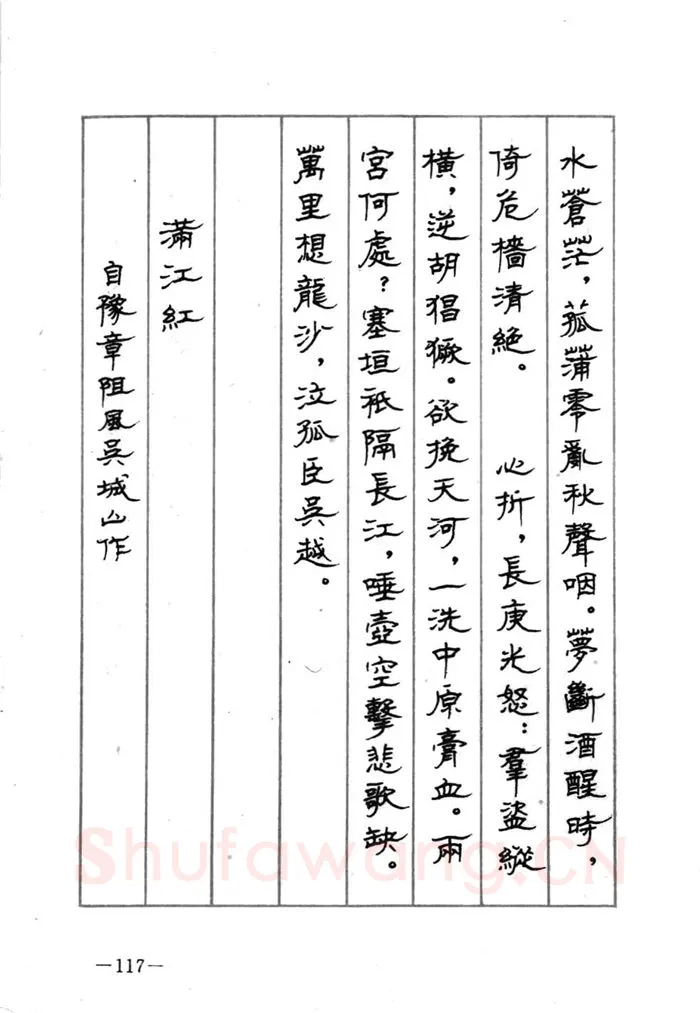 水蒼茫，菰蒲零亂秋聲咽。夢斷酒醒時，
倚危檣清絕。　心折，長庚光怒：羣盜縱
橫，逆胡猖獗。欲挽天河，一洗中原膏血。兩
宮何處？塞垣祇隔長江，唾壺空擊悲歌缺。
萬里想龍沙，泣孤臣吳越。
滿江紅
自豫章阻風吳城山作
Shufawang.CN
—117—